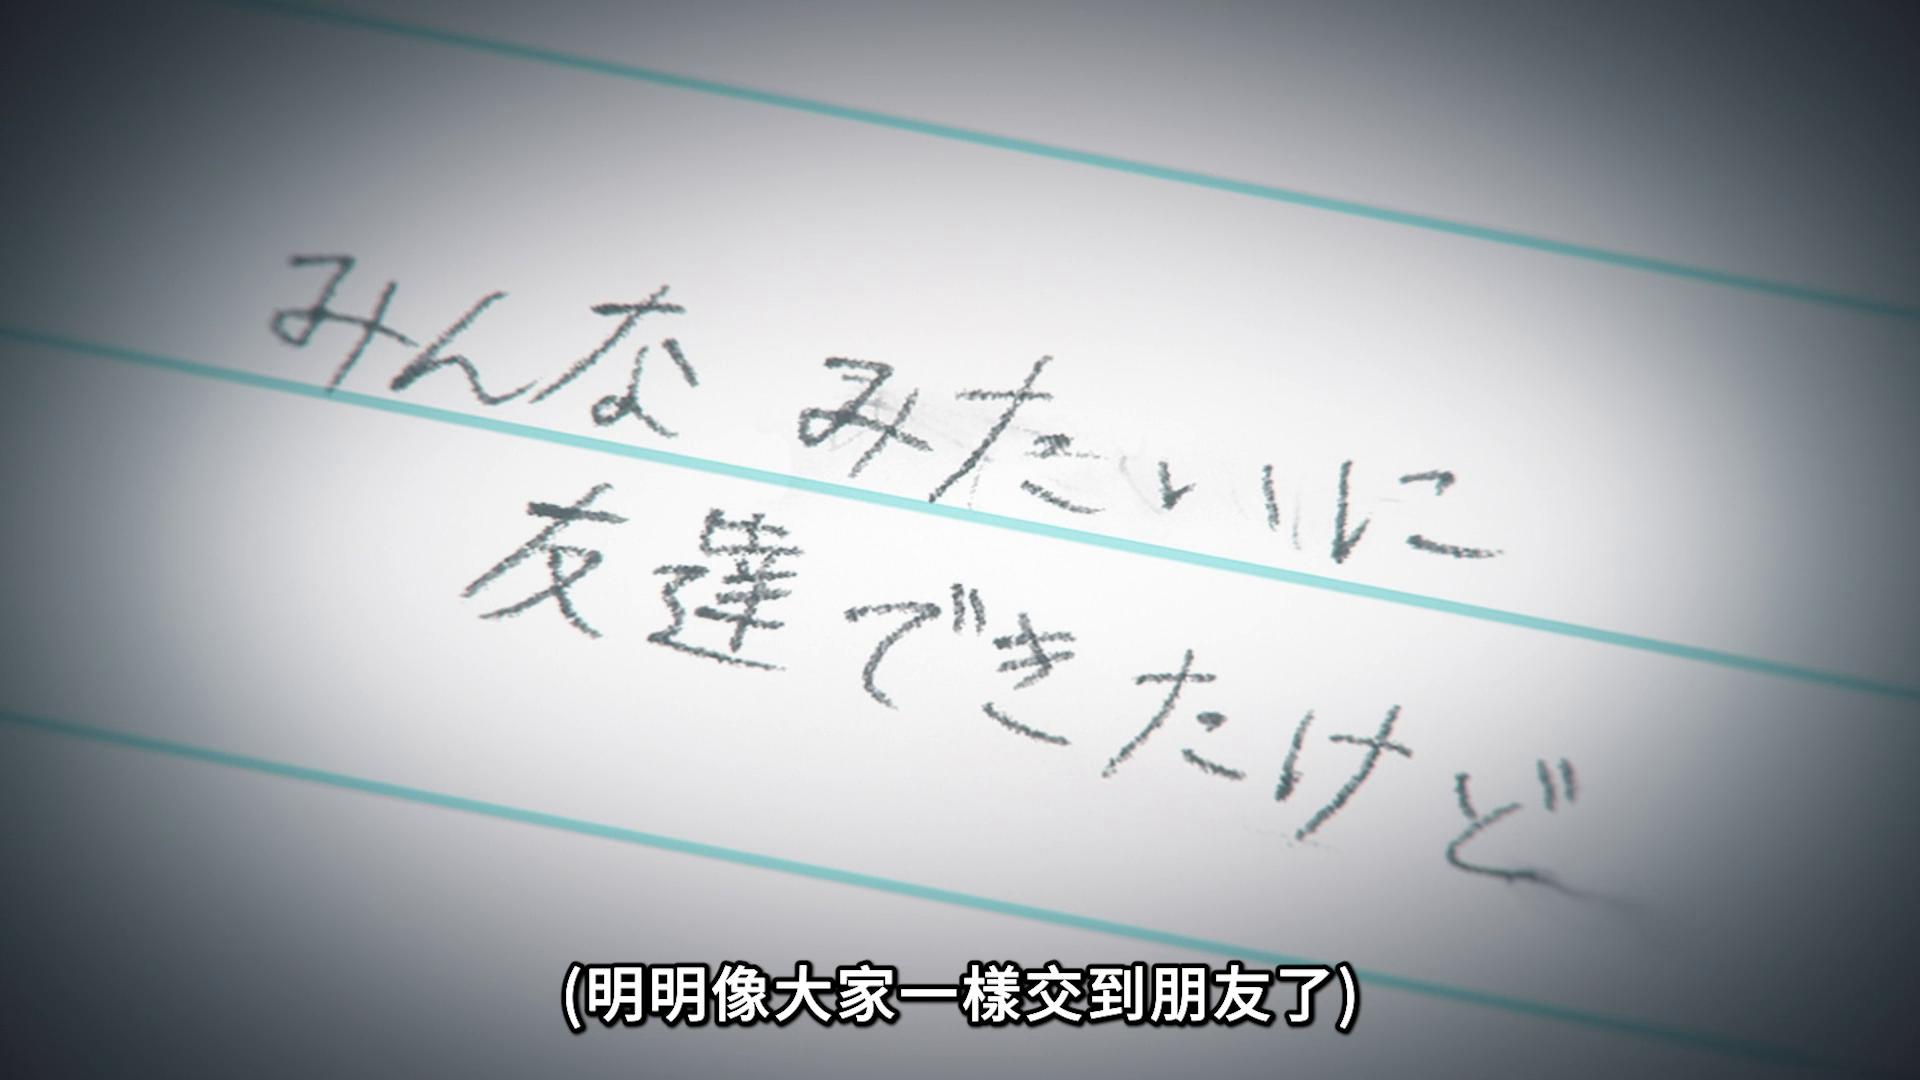 みんな みたいに
友達できたけど
(明明像大家一樣交到朋友了)